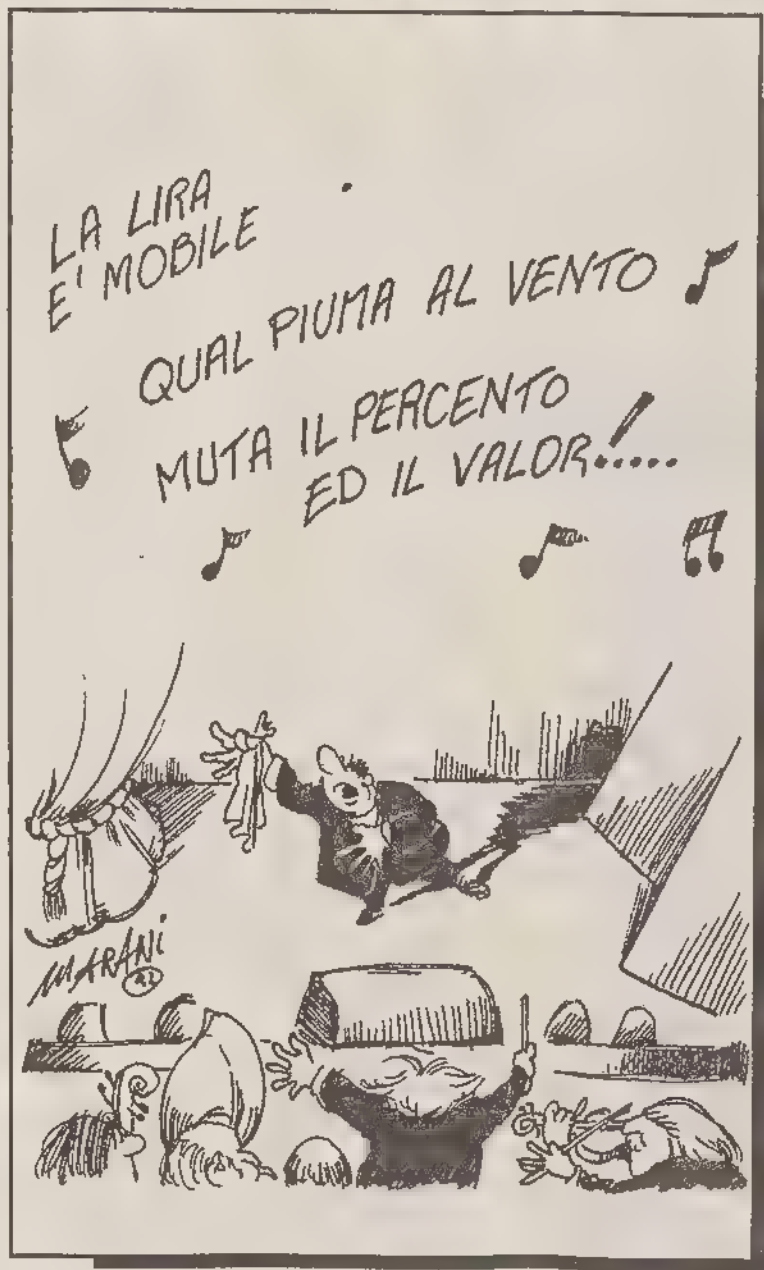 LA LIRA
E' MOBILE
QUAL PIUMA AL VENTO
MUTA IL PERCENTO
ED IL VALOR!.....
MARANI